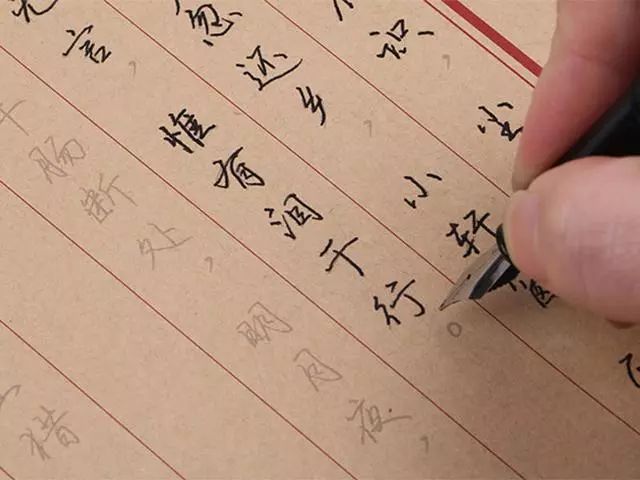 识，尘
忽还乡，小轩
无言，惟有泪千行。
肠断处，明月夜，
猎